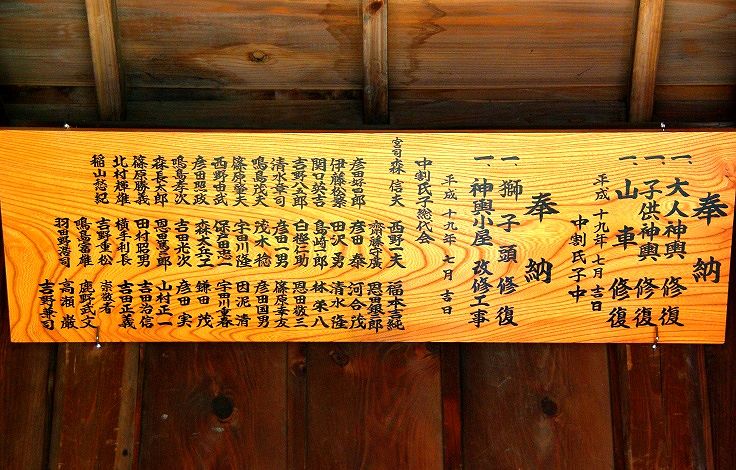 奉納
一、大人神輿 修復
一、子供神輿 修復
一、山車 修復
平成十九年七月吉日
中割氏子中
奉納
一、獅子頭 修復
一、神輿小屋 改修工事
平成十九年七月吉日
中割氏子総代会
宮司 森 信夫
西野一夫
福本吉純
齋藤守廣
恩田銀二郎
彦田 泰
河合 茂
伊藤松繁
田沢 勇
清水 隆
関口英吉
島崎一郎
林 栄八
吉野八五郎
白樫仁助
恩田敬三
清水章司
彦田一男
篠原幸友
鳴島茂夫
茂木 稔
彦田国男
篠原肇夫
宇田川隆
因泥 清
西野由武
保田恵一
宇田川重春
彦田照政
森大五工
鎌田 茂
鳴島孝次
吉田米次
彦田 実
森長太郎
恩田萬二郎
山村正一
篠原勝義
田村昭男
吉田治信
北村輝雄
横手利長
吉田正義
稲山悠紀
吉野重松
崇敬者
鹿野武文
鳴島喜雄
高瀬 巌
羽田野浩司
吉野兼司